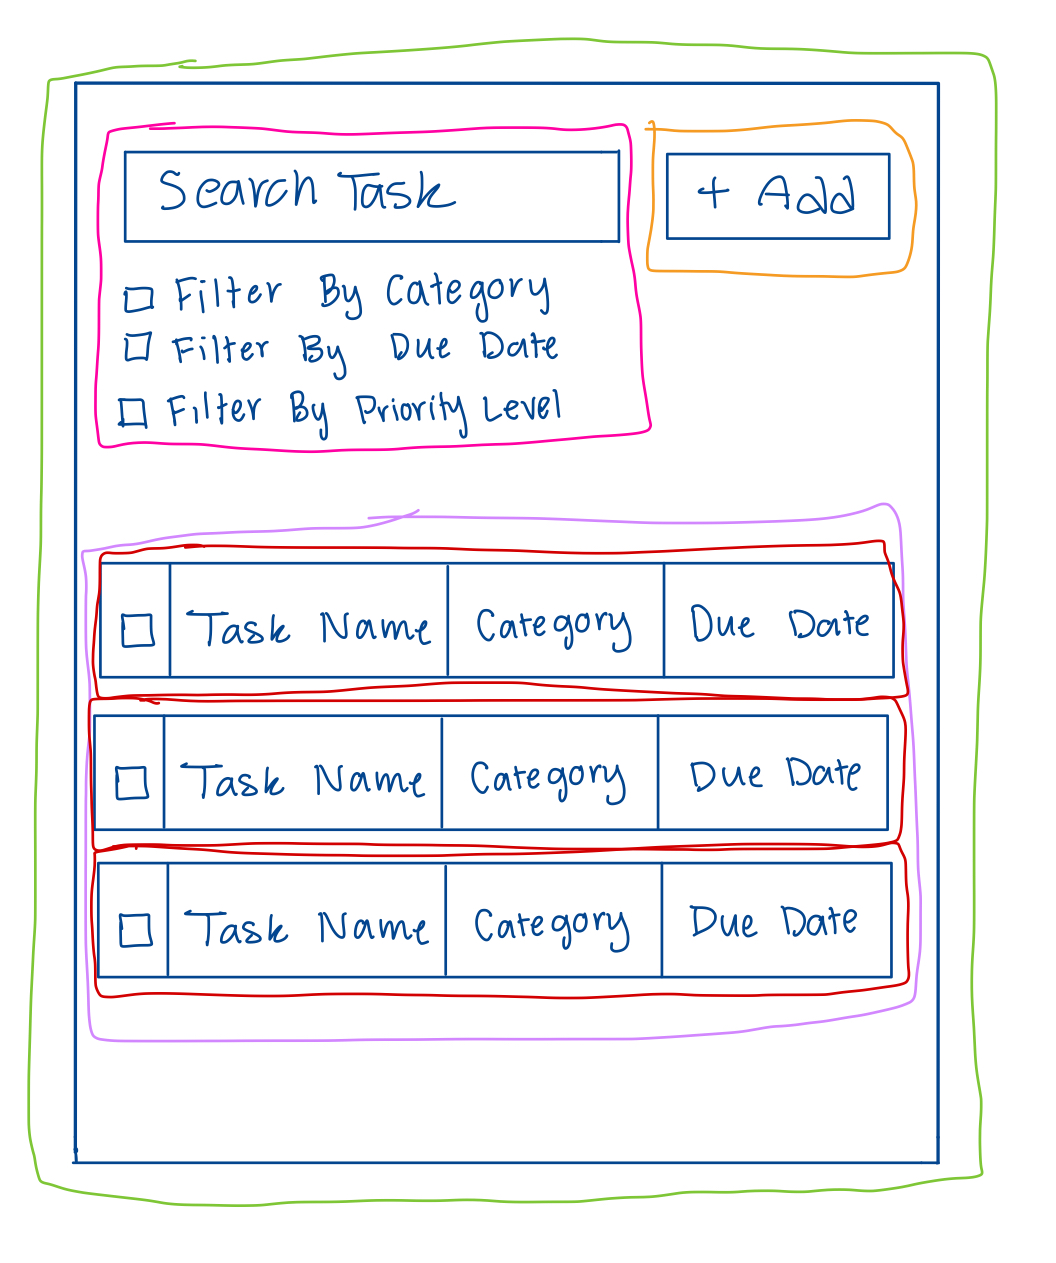 Search Task
+ Add
Filter By Category
Filter By Due Date
Filter By Priority Level
Task Name Category Due Date
Task Name Category Due Date
Task Name Category Due Date